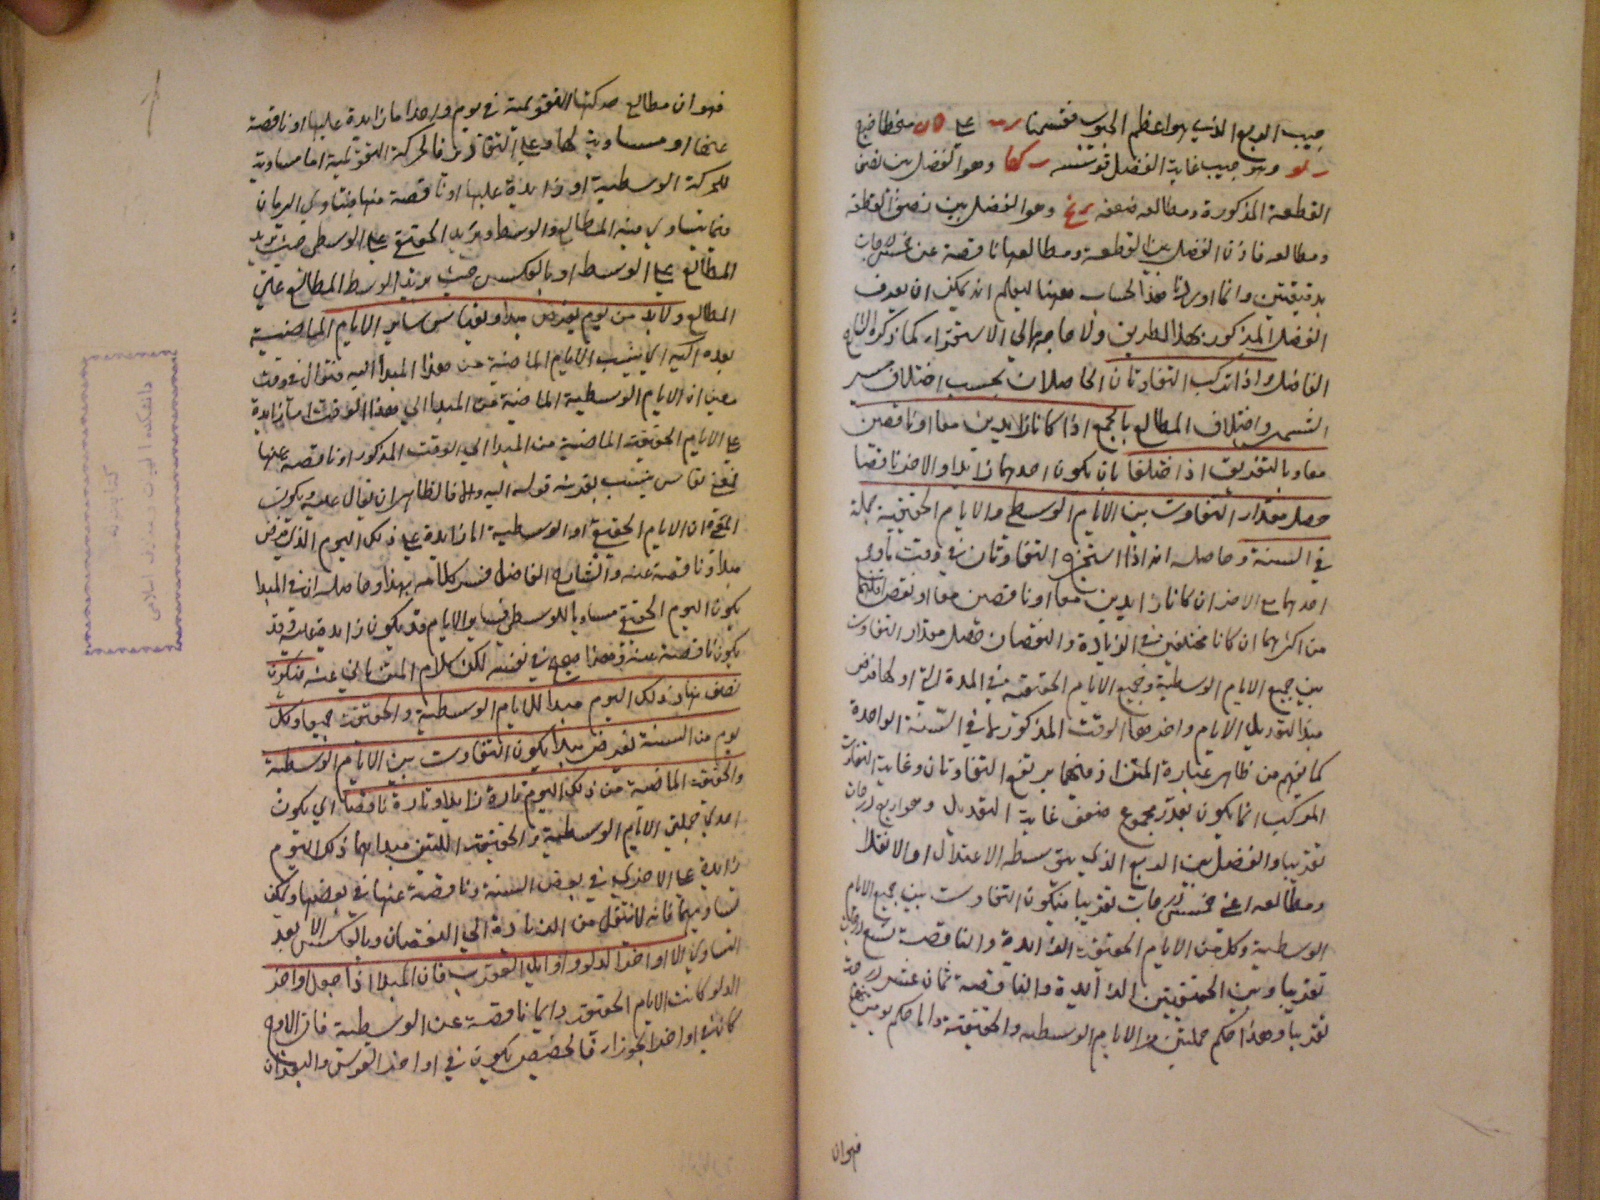 جيب الربع الذي هو اعظم الجيوب فقسمنا على منحطا
وهو جيب غاية الفضل قوسه وهو الفضل بين نصف
القطعة المذكورة ومطالعه ضعفه وهو الفضل بين نصف القطعة
ومطالعه فاذن الفضل بين القطعة ومطالعها ناقصة عن خمس درجات
بدقيقتين وانما اوردنا هذا الحساب ههنا ليعلم انه يمكن ان يعرف
الفضل المذكور بهذا الطريق ولا حاجة الى الاستقرار كما ذكره الشارح
الفاضل واذا تركب التفاوتان الحاصلان بحسب اختلاف سير
الشمس واختلاف المطالع بالجمع اذا كانا زائدين معا او ناقصين
معا وبالتفريق اذا اختلفا بان يكون احدهما زائدا والاخر ناقصا
حصل مقدار التفاوت بين الايام الوسطى والايام الحقيقية جملة
في السنة وحاصله انه اذا استخرج التفاوتان في وقت
احدهما مع الاخر ان كانا زايدين معا او ناقصين معا او نقص اقلهما
من اكثرهما ان كانا مختلفين في الزيادة والنقصان حصل مقدار التفاوت
بين جميع الايام الوسطية وجميع الايام الحقيقية في المدة التي اولها فرض
مبدا لتعديل الايام واخرها الوقت المذكور لا في السنة الواحدة
كما يفهم من ظاهر عبارة المتن اذ فيها يرتفع التفاوتان وغاية التفاوت
المركب انما يكون بقدر مجموع ضعف غاية التعديل وهو اربع درجات
تقريبا والفضل بين الربع الذي يتوسطه الاعتدال او الانقلاب
ومطالعه اعني خمس درجات تقريبا فيكون التفاوت بين جميع الايام
الوسطية وكل من الايام الحقيقية الزايدة والناقصة تسع درجات
تقريبا وبين الحقيقتين الزايدة والناقصة ثمان عشر درجة
تقريبا وهذا حكم جملتين من الايام الوسطية والحقيقية واما حكم يومين منها
فهو ان
فهو ان مطالع حركتها التقويمية في يوم واحد اما زايدة عليها او ناقصة
عنها او مساوية لها وعلى التقادير فالحركة التقويمية اما مساوية
للحركة الوسطية او زايدة عليها او ناقصة منها فتساوي اليومان
فيما يتساوى فيه المطالع والوسط ويزيد الحقيقي على الوسطى حيث يزيد
المطالع على الوسط او بالعكس حيث يزيد الوسط المطالع على
المطالع ولابد من يوم يفرض مبدا ويقاس ساير الايام الماضية
بعده اليه اي ينسب الايام الماضية من هذا المبدا اليه فيقال في وقت
معين ان الايام الوسطية الماضية من المبدا الى هذا الوقت اما زايدة
على الايام الحقيقة الماضية من المبدا الى الوقت المذكور او ناقصة عنها
فمعنى يقاس ينسب بقرينة قوله اليه والا فالظاهر ان يقال عليه ويكون
ان الايام الحقيقية او الوسطية اما زايدة على ذلك اليوم الذي فرض
مبدا او ناقصة عنه والشارح الفاضل فسر كلامه بهذا وحاصله ان في المبدا
يكون اليوم الحقيقي مساويا للوسطى وساير الايام قد يكون زايدة عليه وقد
يكون ناقصة عنه وهذا صحيح في نفسه لكن كلام المتن يابى عنه فيكون
نصف نهار ذلك اليوم مبدا للايام الوسطية والحقيقة جميعا وكل
يوم من السنة يفرض مبدا يكون التفاوت بين الايام الوسطية
والحقيقة الماضية من ذلك اليوم تارة زايدا وتارة ناقصا اي يكون
احدى جملتي الايام الوسطية والحقيقة اللتين مبداهما ذلك اليوم
زايدة على الاخرى في بعض السنة وناقصة عنها في بعضها ويمكن
تساويهما فانه لا ينتقل من الزيادة الى النقصان وبالعكس الا بعد
التساوي الا اواخر الدلو واوايل العقرب فان المبدا اذا جعل اواخر
الدلو كانت الايام الحقيقة دايما ناقصة عن الوسطية فان الاوج
كائن في اواخر الجوزا فالحضيض يكون في اواخر القوس والبعدان
كتابخانه
دانشكده الهيات و معارف اسلامى